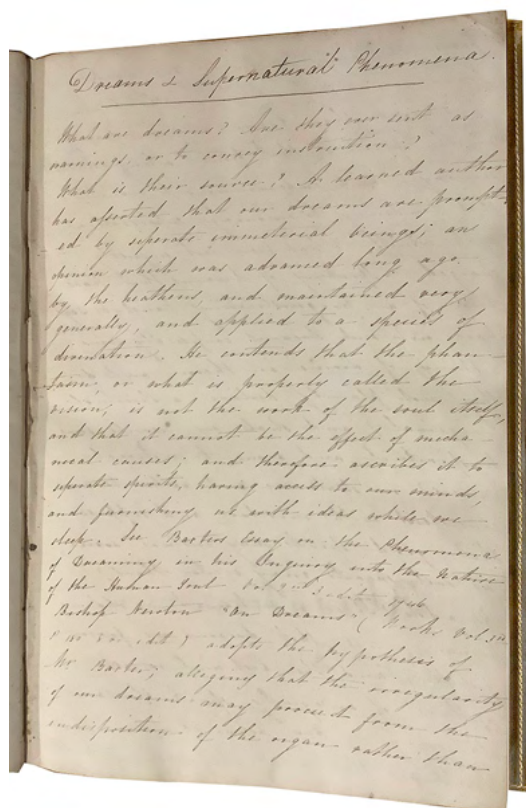 Dreams & Supernatural Phenomena.
What are dreams? Are they ever sent as
warnings, or to convey instruction?
What is their source? A learned author
has asserted that our dreams are prompt-
ed by seperate immeterial beings; an
opinion which was advanced long ago
by the heathens, and maintained very
generally, and applied to a species of
divination. He contends that the phan-
tasm, or what is properly called the
vision, is not the work of the soul itself,
and that it cannot be the effect of mecha-
nical causes; and therefore ascribes it to
seperate spirits, having access to our minds,
and furnishing us with ideas while we
sleep. See Baxters Essay on the Phenomena
of Dreaming in his Enquiry into the Nature
of the Human Soul
Bishop Newton "On Dreams" (Works Vol
edit) adopts the hypothesis of
Mr Baxter; alleging that the irregularity
of our dreams may proceed from the
indisposition of the organ rather than